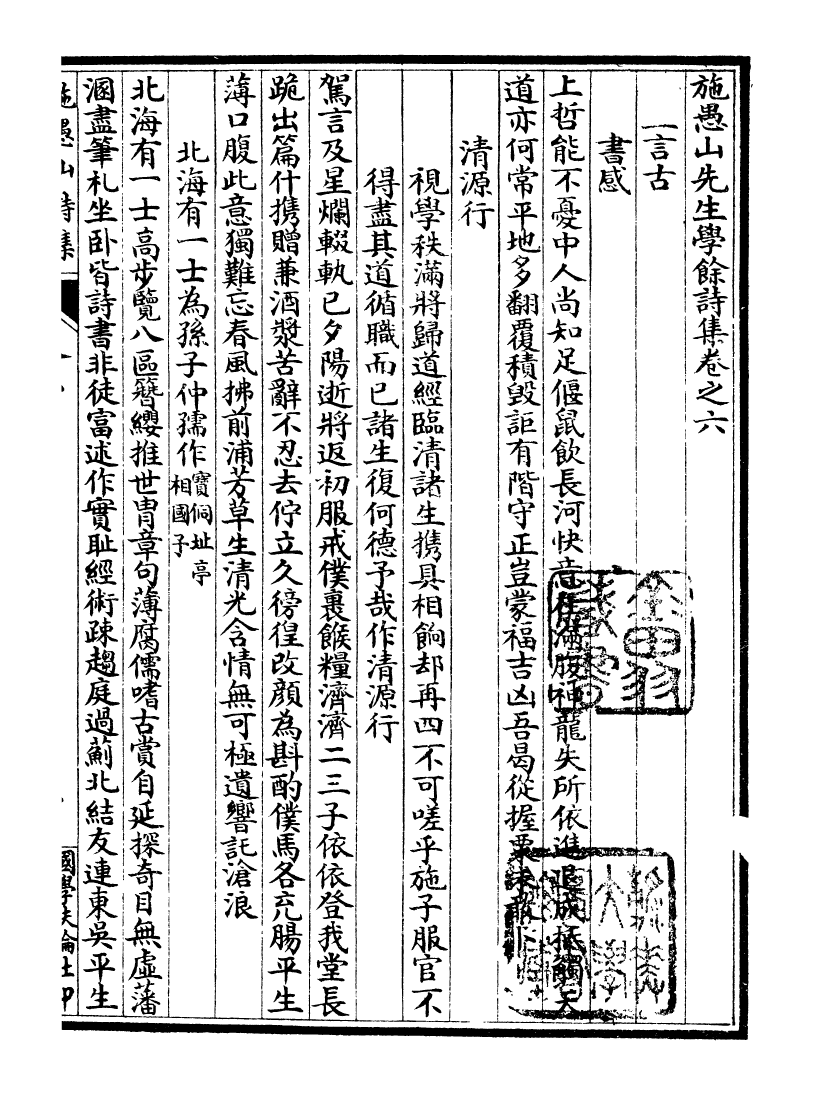 施愚山先生學餘詩集卷之六
一言古
書感
上哲能不憂中人尚知足偃鼠飲長河快意在滿腹神龍失所依進退成抵觸天
道亦何常平地多翻覆積毀詎有階守正豈蒙福吉凶吾曷從握粟未敢卜
清源行
視學秩滿將歸道經臨清諸生携具相餉却再四不可嗟乎施子服官不
得盡其道循職而已諸生復何德予哉作清源行
駕言及星爛輟軌已夕陽逝將返初服戒僕裹餱糧濟濟二三子依依登我堂長
跪出篇什携贈兼酒漿苦辭不忍去佇立久徬徨改顏為斟酌僕馬各充腸平生
薄口腹此意獨難忘春風拂前浦芳草生清光含情無可極遺響託滄浪
北海有一士為孫子仲孺作寶侗址亭
相國子
北海有一士高步覽八區簪纓推世胄章句薄腐儒嗜古賞自延探奇目無虛藩
溷盡筆札坐卧皆詩書非徒富述作實耻經術疎趨庭過薊北結友連東吳平生
施愚山詩集
國學扶輪社印